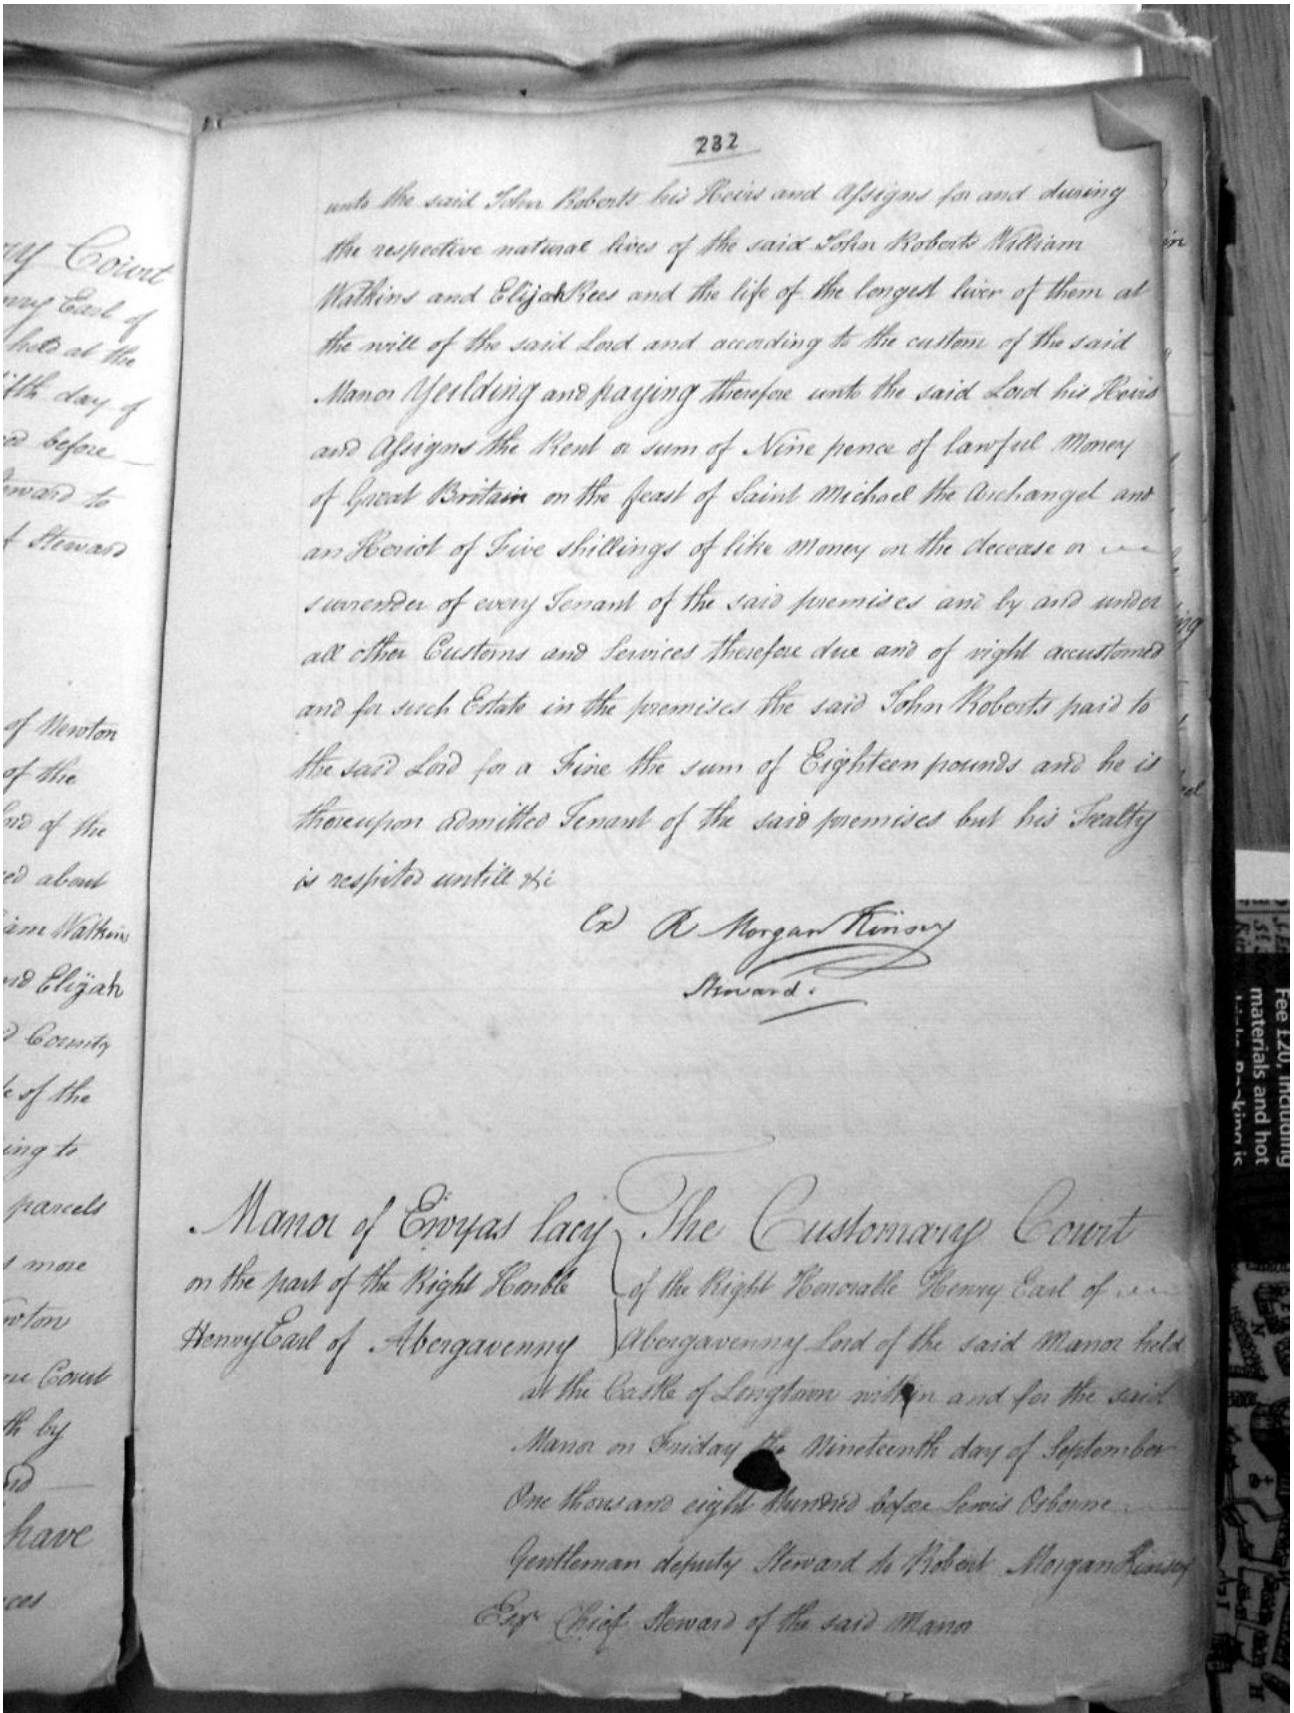 ry Court
nry Earl of
held at the
ifth day of
ed before
teward to
f Steward
of Newton
of the
ord of the
ed about
iam Watkins
nd Elijah
d County
fe of the
ing to
parcels
s more
wton
ne Court
th by
nd
have
ces
232
unto the said John Roberts his Heirs and Assigns for and during
the respective natural lives of the said John Roberts William
Watkins and Elijah Rees and the life of the longest liver of them at
the will of the said Lord and according to the custom of the said
Manor Yeilding and paying therefore unto the said Lord his Heirs
and Assigns the Rent or sum of Nine pence of lawful Money
of Great Britain on the feast of Saint Michael the Archangel and
an Heriot of Five shillings of like Money on the decease or
surrender of every Tenant of the said premises and by and under
all other Customs and Services therefore due and of right accustomed
and for such Estate in the premises the said John Roberts paid to
the said Lord for a Fine the sum of Eighteen pounds and he is
thereupon admitted Tenant of the said premises but his Fealty
is respited untill &c
Ex R Morgan Kinsey
Steward.
Manor of Ewyas lacy
on the part of the Right Honble
Henry Earl of Abergavenny
The Customary Court
of the Right Honorable Henry Earl of
Abergavenny Lord of the said Manor held
at the Castle of Longtown within and for the said
Manor on Friday the Nineteenth day of September
One thousand eight Hundred before Lewis Osborne
Gentleman deputy Steward to Robert Morgan Kinsey
Esqr Chief Steward of the said Manor
Fee £20, including
materials and hot